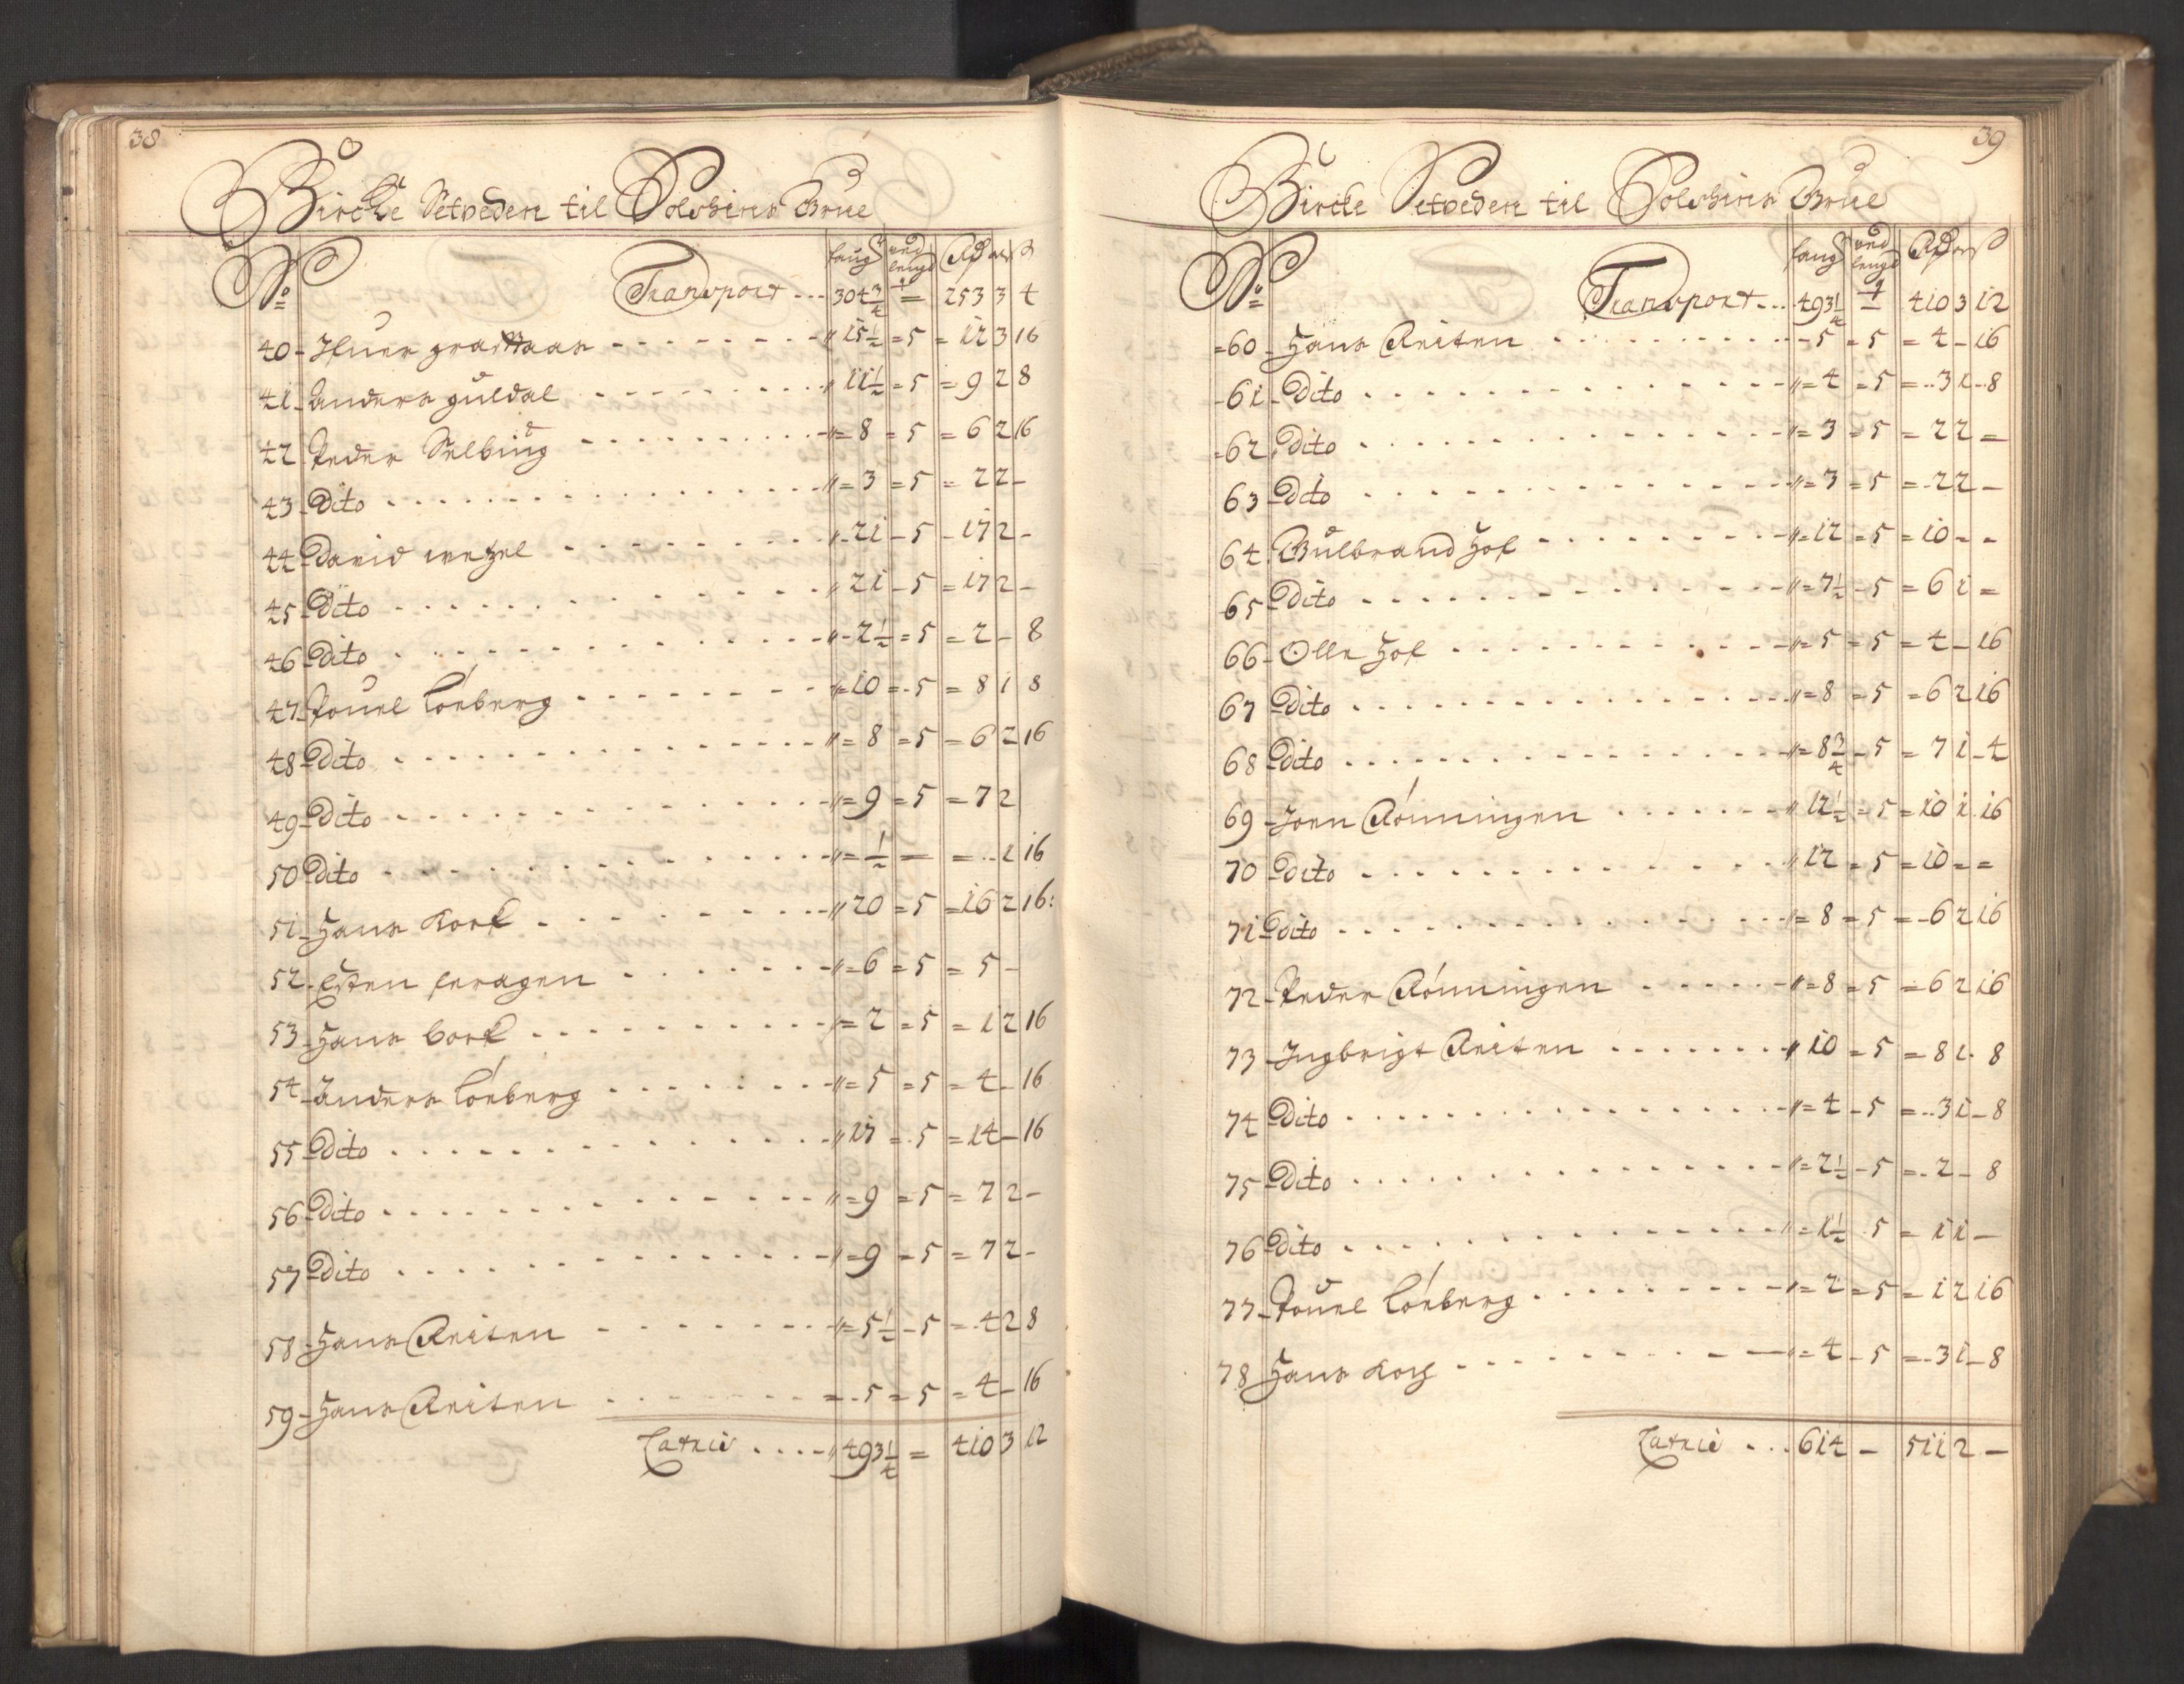 38
Bircke Setveden til Solskins Grue
No faug ved lengd Rdr ort s
Transport ... 304 3/4 = 253 3 4
40 - Ifuer graattaas - - - " 15 1/2 = 5 = 12 3 16
41 - Anders guldal - - - " 11 1/2 = 5 = 9 2 8
42 Peder Selbing - - - " = 8 = 5 = 6 2 16
43 - Dito - - - " = 3 = 5 = 2 2 -
44 David wezel - - - " - 21 - 5 - 17 2 -
45 - Dito - - - " 21 - 5 = 17 2 -
46 - Dito - - - " - 2 1/2 = 5 = 2 - 8
47 - Pouel Lónberg - - - " = 10 = 5 = 8 1 8
48 - Dito - - - " = 8 = 5 = 6 2 16
49 - Dito - - - " = 9 = 5 = 7 2
50 Dito - - - " = 1/2 = = .. 1 16
51 - Hans Kork - - - " 20 = 5 = 16 2 16:
52 - Esten feragen - - - " = 6 = 5 = 5 -
53 - Hans Cork - - - " = 2 = 5 = 1 2 16
54 - Anders Lónberg - - - " = 5 = 5 = 4 - 16
55 - Dito - - - " 17 = 5 = 14 - 16
56 - Dito - - - " = 9 = 5 = 7 2 -
57 - Dito - - - " = 9 = 5 = 7 2 -
58 - Hans Reiten - - - " = 5 1/2 - 5 = 4 2 8
59 - Hans Reiten - - - = 5 = 5 = 4 - 16
Latrie .... " 493 1/4 = 410 3 12
39
Bircke Setveden til Solskins Grue
No faug ved lengd Rdr ort s
Transport ... 493 1/4 410 3 12
= 60 - Hans Reiten - - - 5 = 5 = 4 - 16
- 61 - Dito - - - " = 4 = 5 = .. 3 1 .. 8
= 62 Dito - - - " = 3 = 5 = 2 2 =
63 - Dito - - - " = 3 = 5 = 2 2 -
64 Gulbrand Hof - - - " = 12 = 5 = 10 - -
65 Dito - - - " = 7 1/2 - 5 = 6 1 =
66 - Olle Hof - - - " = 5 = 5 = 4 - 16
67 Dito - - - " = 8 = 5 = 6 2 16
68 Dito - - - " = 8 3/4 - 5 = 7 1 - 4
69 - Joen Rónningen - - - " 12 1/2 = 5 = 10 1 . 16
70 - Dito - - - " 12 = 5 = 10 = =
71 Dito - - - " = 8 = 5 = - 6 2 16
72 - Peder Rónningen - - - " = 8 = 5 = 6 2 16
73 - Ingbrigt Reiten - - - " 10 = 5 = 8 1 . 8
74 Dito - - - " = 4 - 5 = .. 3 1 - 8
75 - Dito - - - " = 2 1/2 - 5 = . 2 - 8
76 Dito - - - " = 1 1/2 . 5 = 1 1 -
77 - Pouel Lónberg - - - " = 2 = 5 = 1 2 16
78 Hans Koch - - - " = 4 - 5 = - 3 1 - 8
Latrie ... 614 - 511 2 -